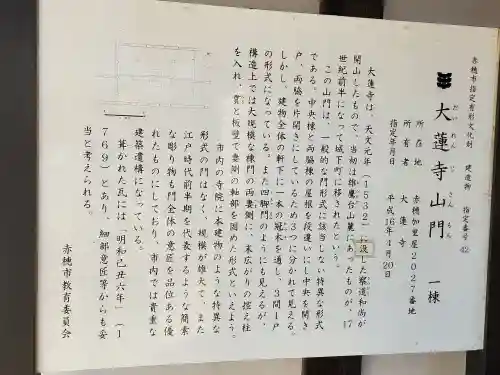 赤穂市指定有形文化財　建造物　指定番号42
だいれんじさんもん
大蓮寺山門　一棟
所在地　赤穂加里屋2027番地
所有者　大蓮寺
指定年月日　平成16年1月20日
大蓮寺は、天文元年(1532)に没した察道和尚が
開山したもので、当初は雄鷹台山麓にあったものが、17
世紀前半になって城下町に移されたという。
この山門は、一般的な門形式に該当しない特異な形式
である。中央棟と両脇棟の屋根を段違いにし中央を開き
戸、両脇を片開きにしているため3つに分かれて見える。
しかし、建物全体の軒下に一本の冠木を通し、3間1戸
の形式になっている。また四脚門のようにも見えるが、
構造上では大規模な棟門の両妻側に、末広がりの控え柱
を入れ、貫と板壁で妻側の軸部を固めた形式といえよう。
市内の寺院に本建物のような特異な
形式の門はなく、規模が雄大で、また
江戸時代前半期を代表するような簡素
な彫り物も門全体の意匠を品位ある優
れたものにしており、市内では貴重な
建築遺構になっている。
葺かれた瓦には「明和己丑六年」(1
769)とあり、細部意匠等からも妥
当と考えられる。
赤穂市教育委員会